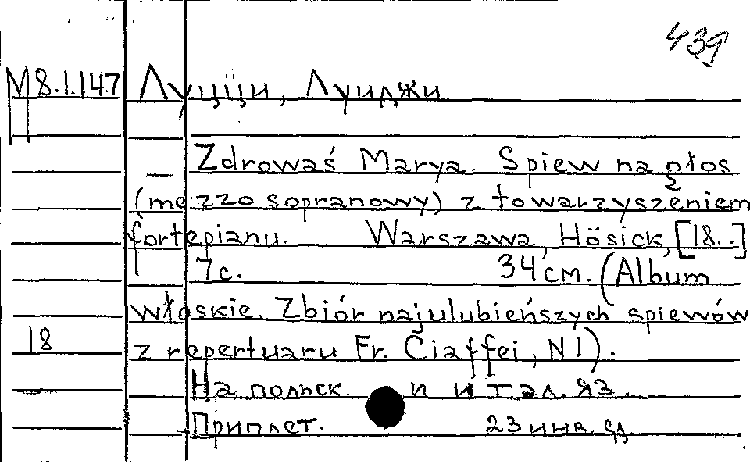 439
М 8.1.147 Луции, Луиджи
— Zdrowaś Marya. Spiew na głos
(mezzo sopranowy) z towarzyszeniem
fortepianu. Warszawa, Hösick, [18..]
7с. 34 см. (Album
włoskie. Zbiór najulubieńszych spiewów
18 z repertuaru Fr. Ciaffei, N1).
На польск. и итал. яз.
Приплет. 23 инв. ед.